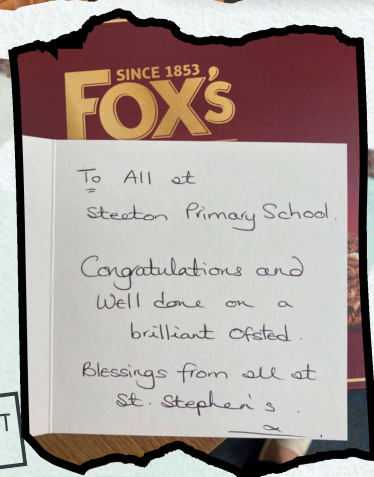 SINCE 1853
FOX'S
To All at
Steeton Primary School.
Congratulations and
Well done on a
brilliant Ofsted.
Blessings from all at
St. Stephen's.
x
T